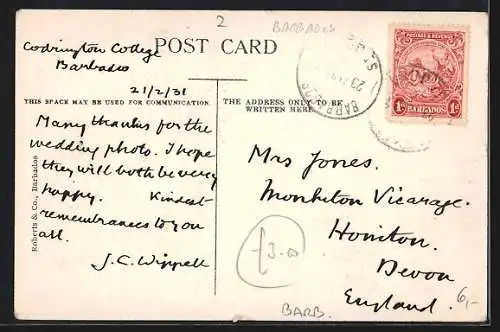 2
BARBADOS
Codrington College
Barbados
POST CARD
21/2/31
THIS SPACE MAY BE USED FOR COMMUNICATION.
THE ADDRESS ONLY TO BE
WRITTEN HERE
POSTAGE & REVENUE
1d
BARBADOS
1d
BARBADOS
Many thanks for the
wedding photo. I hope
they will both be very
happy. Kindest
remembrances to you
all.
J.C. Wippell
Roberts & Co., Barbados
Mrs Jones.
Monkton Vicarage.
Honiton.
Devon
England.
£3.00
BARB.
6,-